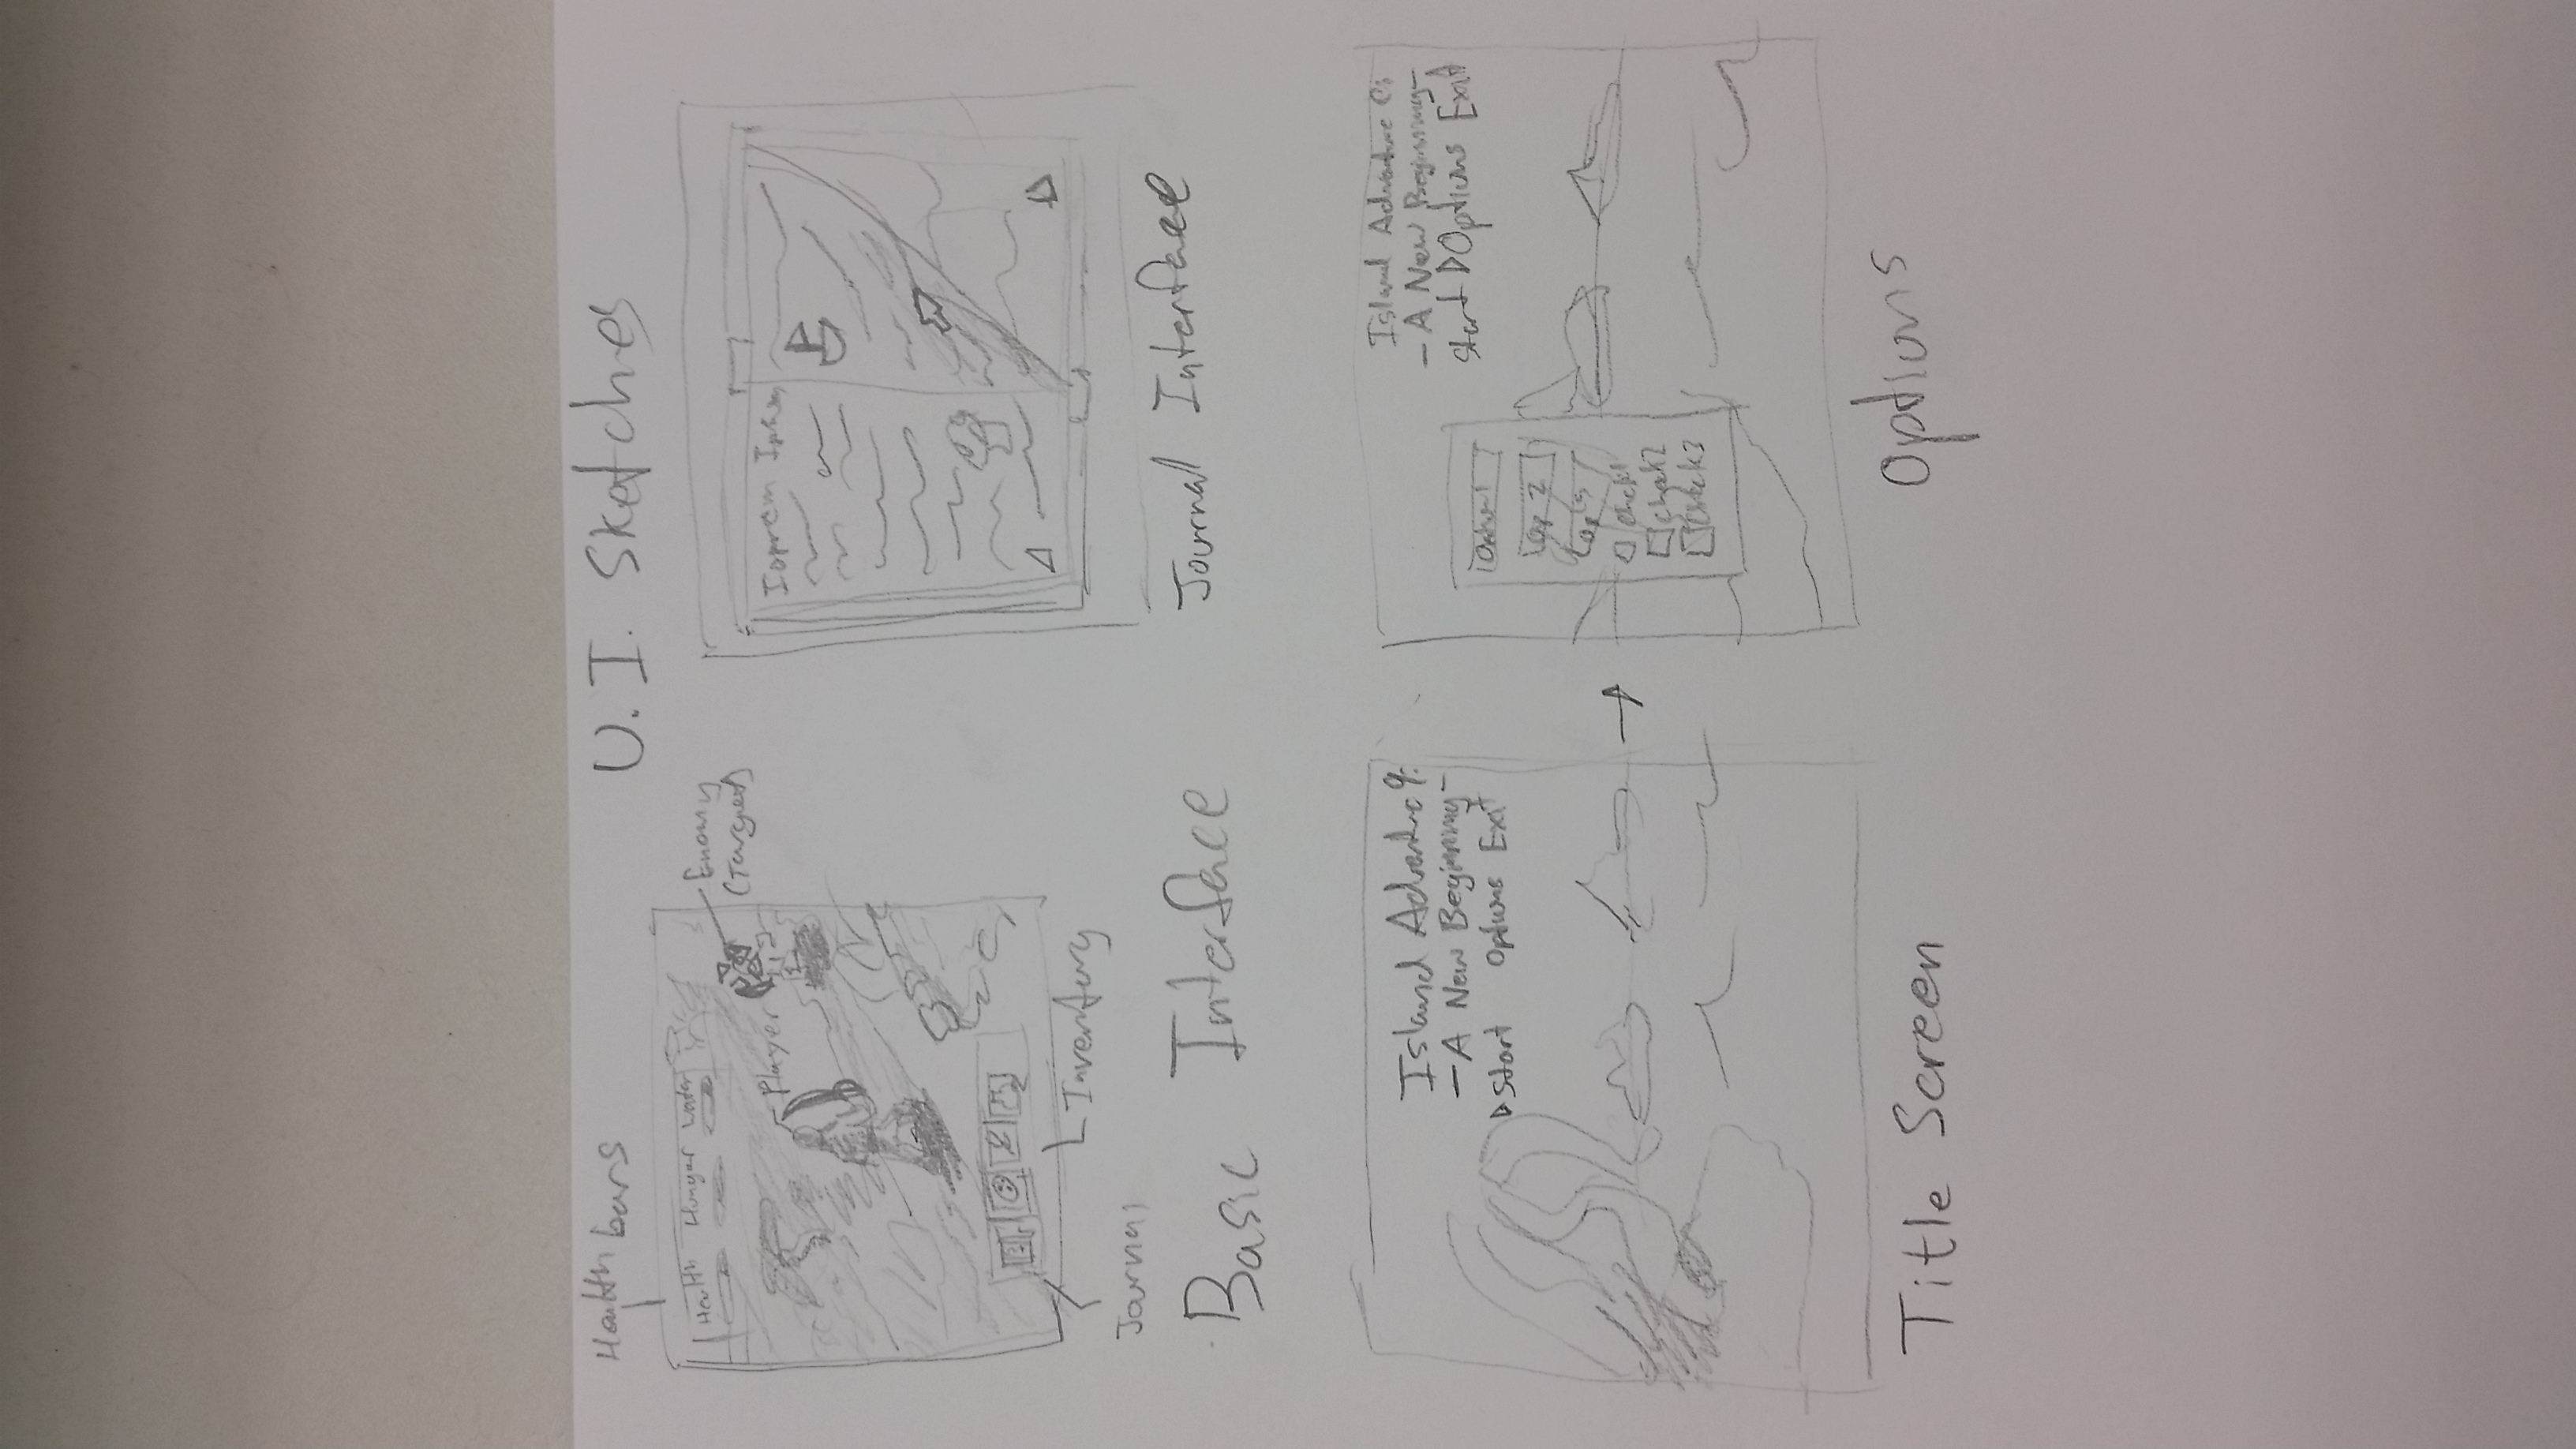 U. I. Sketches
Health bars
Health Hunger Water
Enemy
(Targeted)
Player
Inventory
Journal
Basic Interface
Ioprem Ipsum
Journal Interface
Island Adventure 9:
-A New Beginning-
Start Options Exit
Title Screen
Island Adventure
-A New Beginning-
Start Options Exit
Option 1
Op 2
Check1
Check2
Check3
Options